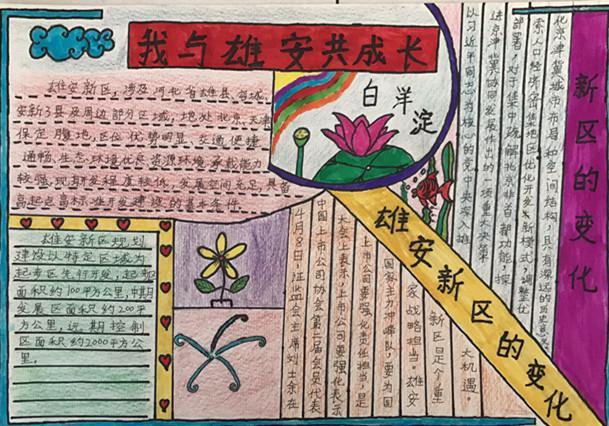 我与雄安共成长
雄安新区,涉及河北省雄县、容城、
安新3县及周边部分区域,地处北京、天津、
保定腹地,区位优势明显、交通便捷
通畅、生态环境优良、资源环境承载能力
较强,现有开发程度较低,发展空间充足,具备
高起点高标准开发建设的基本条件。
白洋淀
雄安新区规划
建设以特定区域为
起步区先行开发,起步区
面积约100平方公里,中期
发展区面积约200平
方公里,远期控制
区面积约2000平方公
里。
以习近平同志为核心的党中央深入推
进京津冀协同发展作出的一项重大决策
部署,对于集中疏解北京非首都功能,探
索人口经济密集地区优化开发新模式,调整优
化京津冀城市布局和空间结构,具有深远的历史意义
新区的变化
雄安新区的变化
4月8日,证监会主席刘士余在
中国上市公司协会第二届会员代表
大会上表示,上市公司要强化表示
上市公司要强化责任担当,是
国家实力冲锋队,要为国
家战略担当。雄安
新区是个重
大机遇。